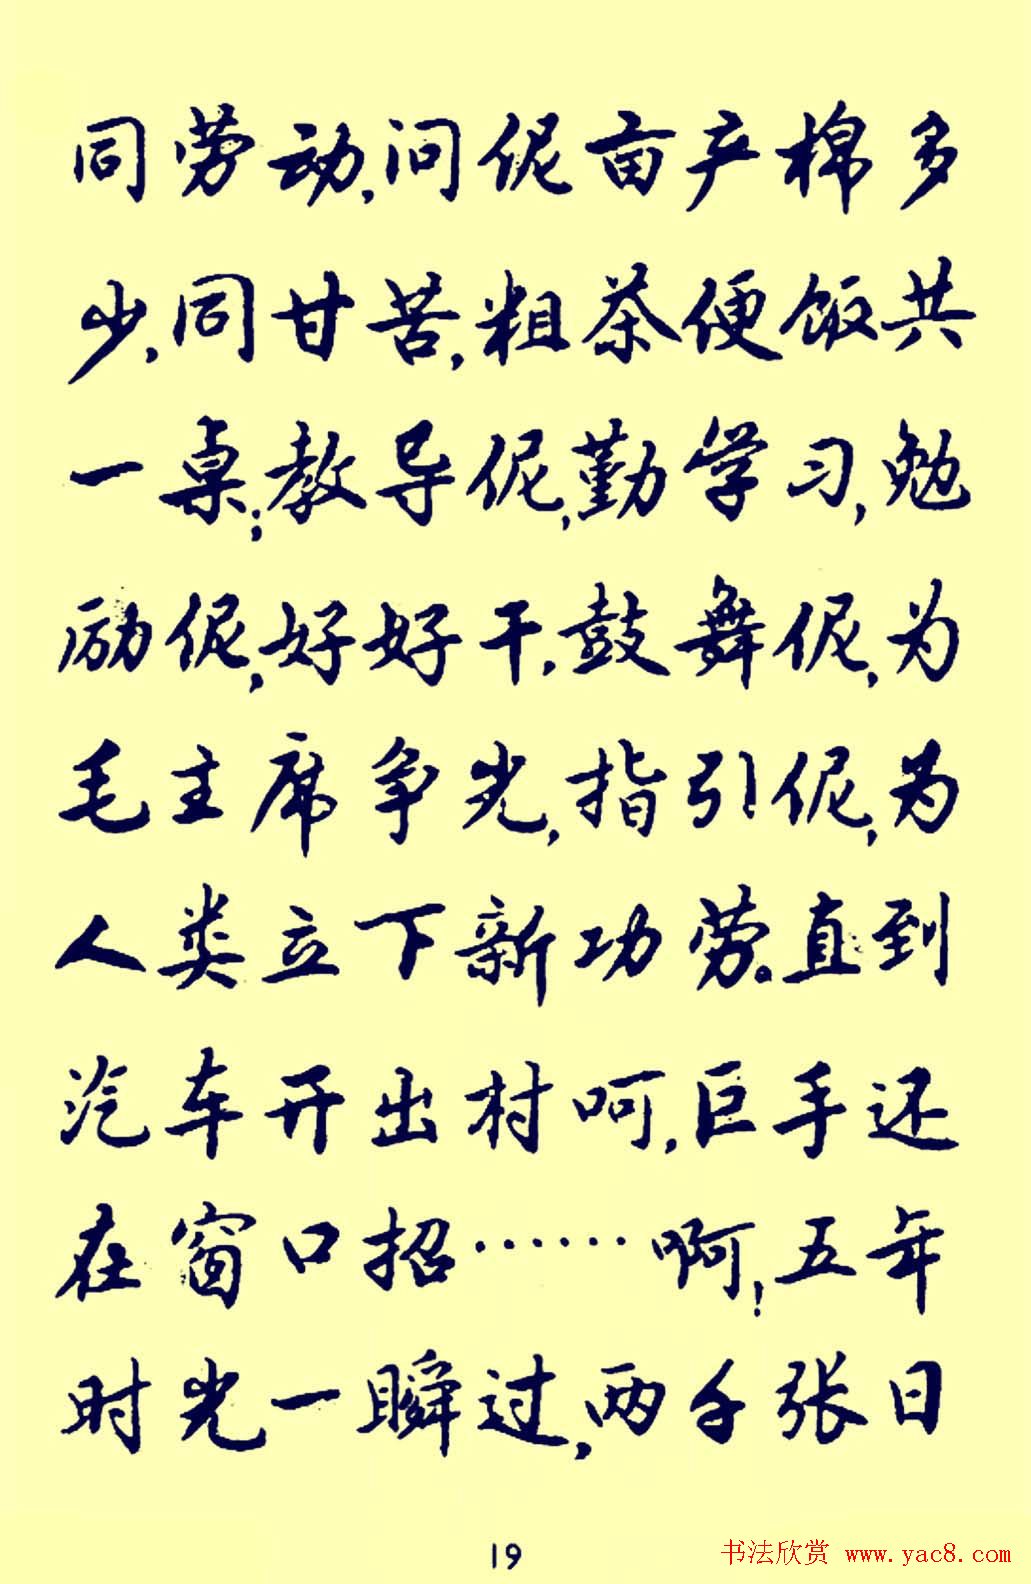 同劳动,问伲亩产棉多
少,同甘苦,粗茶便饭共
一桌;教导伲,勤学习,勉
励伲,好好干,鼓舞伲,为
毛主席争光,指引伲,为
人类立下新功劳。直到
汽车开出村呵,巨手还
在窗口招……啊!五年
时光一瞬过,两千张日
19
书法欣赏 www.yac8.com